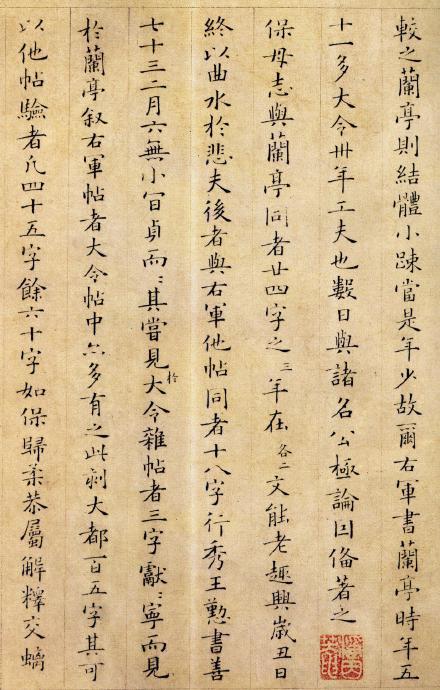 較之蘭亭則結體小踈當是年少故爾右軍書蘭亭時年五
十一多大令卅年工夫也數日與諸名公極論因俻著之
保母志與蘭亭同者廿四字之三年在各二文能老趣興歲丑日
終以曲水於悲夫後者與右軍他帖同者十八字行秀王懃書善
七十三二月六無小百貞而〻其嘗見於大令雜帖者三字獻〻寧而見
於蘭亭叙右軍帖者大令帖中亦多有之此刻大都百五字其可
以他帖驗者凡四十五字餘六十字如保歸柔恭屬解釋交螭